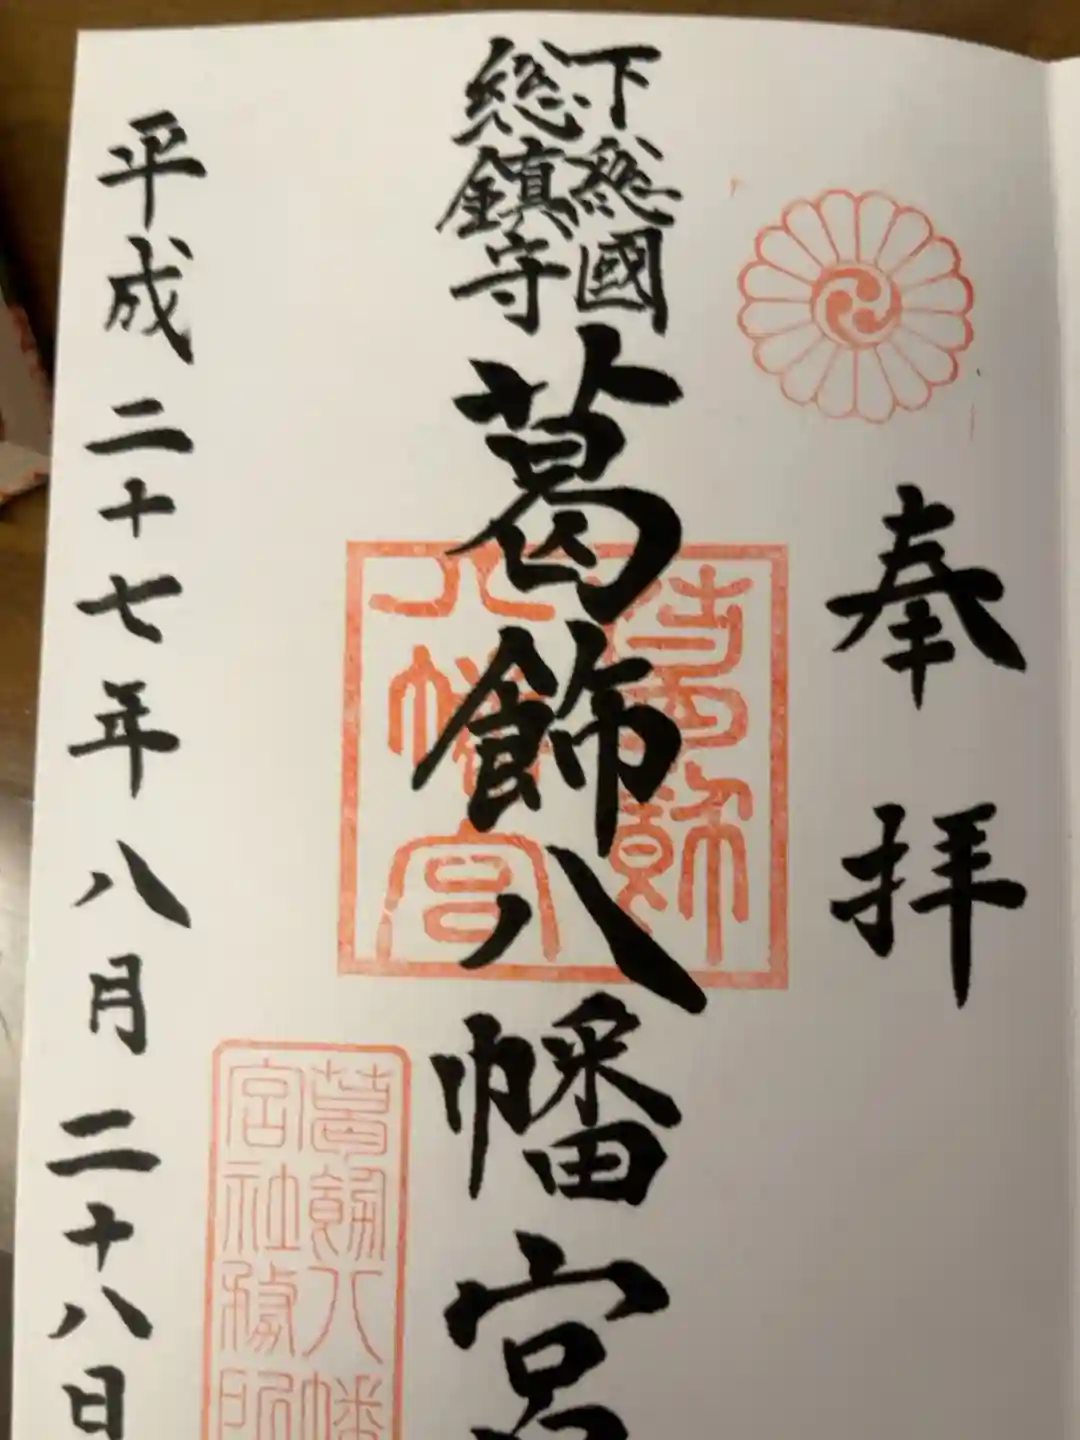 奉拝
下総國
総鎮守
葛飾八幡宮
葛飾
八幡宮
葛飾八幡
宮社務所
平成二十七年八月二十八日